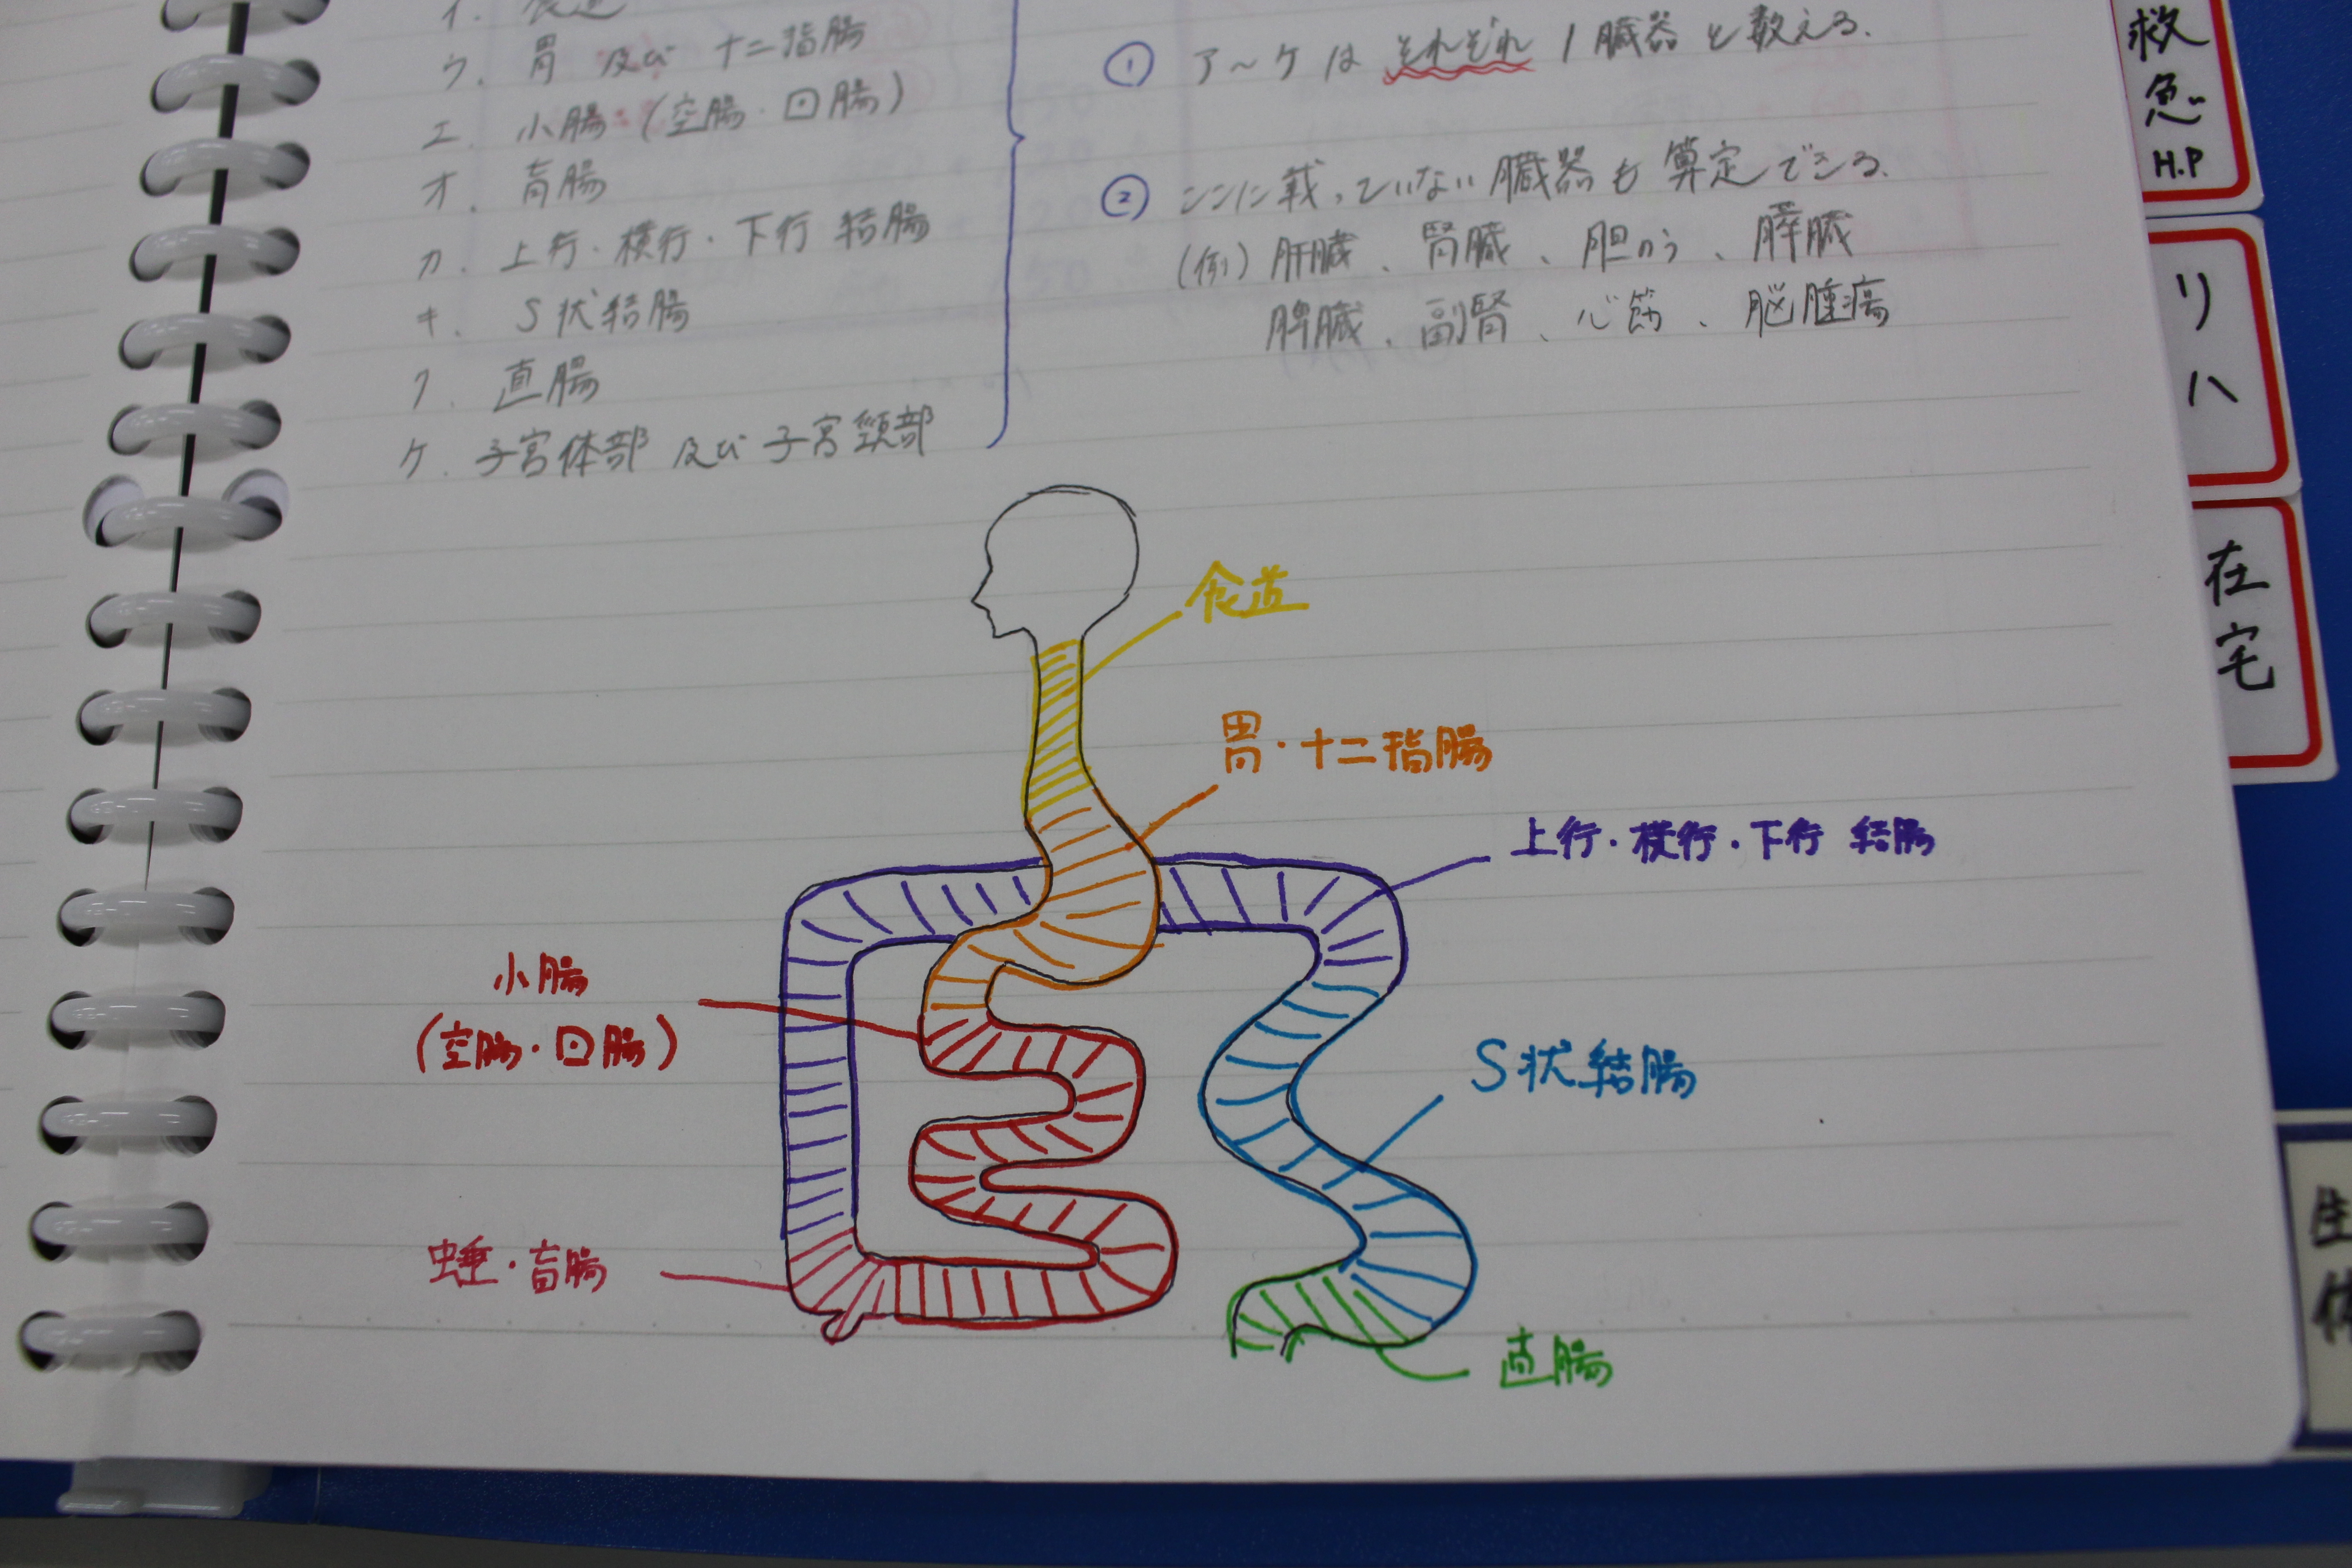 イ. 食道
ウ. 胃 及び 十二指腸
エ. 小腸 (空腸・回腸)
オ. 盲腸
カ. 上行・横行・下行 結腸
キ. S状結腸
ク. 直腸
ケ. 子宮体部 及び 子宮頸部
① ア～ケは それぞれ 1臓器と数える.
② ここに載っていない臓器も算定できる.
(例) 肝臓、腎臓、胆のう、膵臓
脾臓、副腎、心筋、脳腫瘍
食道
胃・十二指腸
上行・横行・下行 結腸
小腸
(空腸・回腸)
S状結腸
虫垂・盲腸
直腸
救急
H.P
リハ
在宅